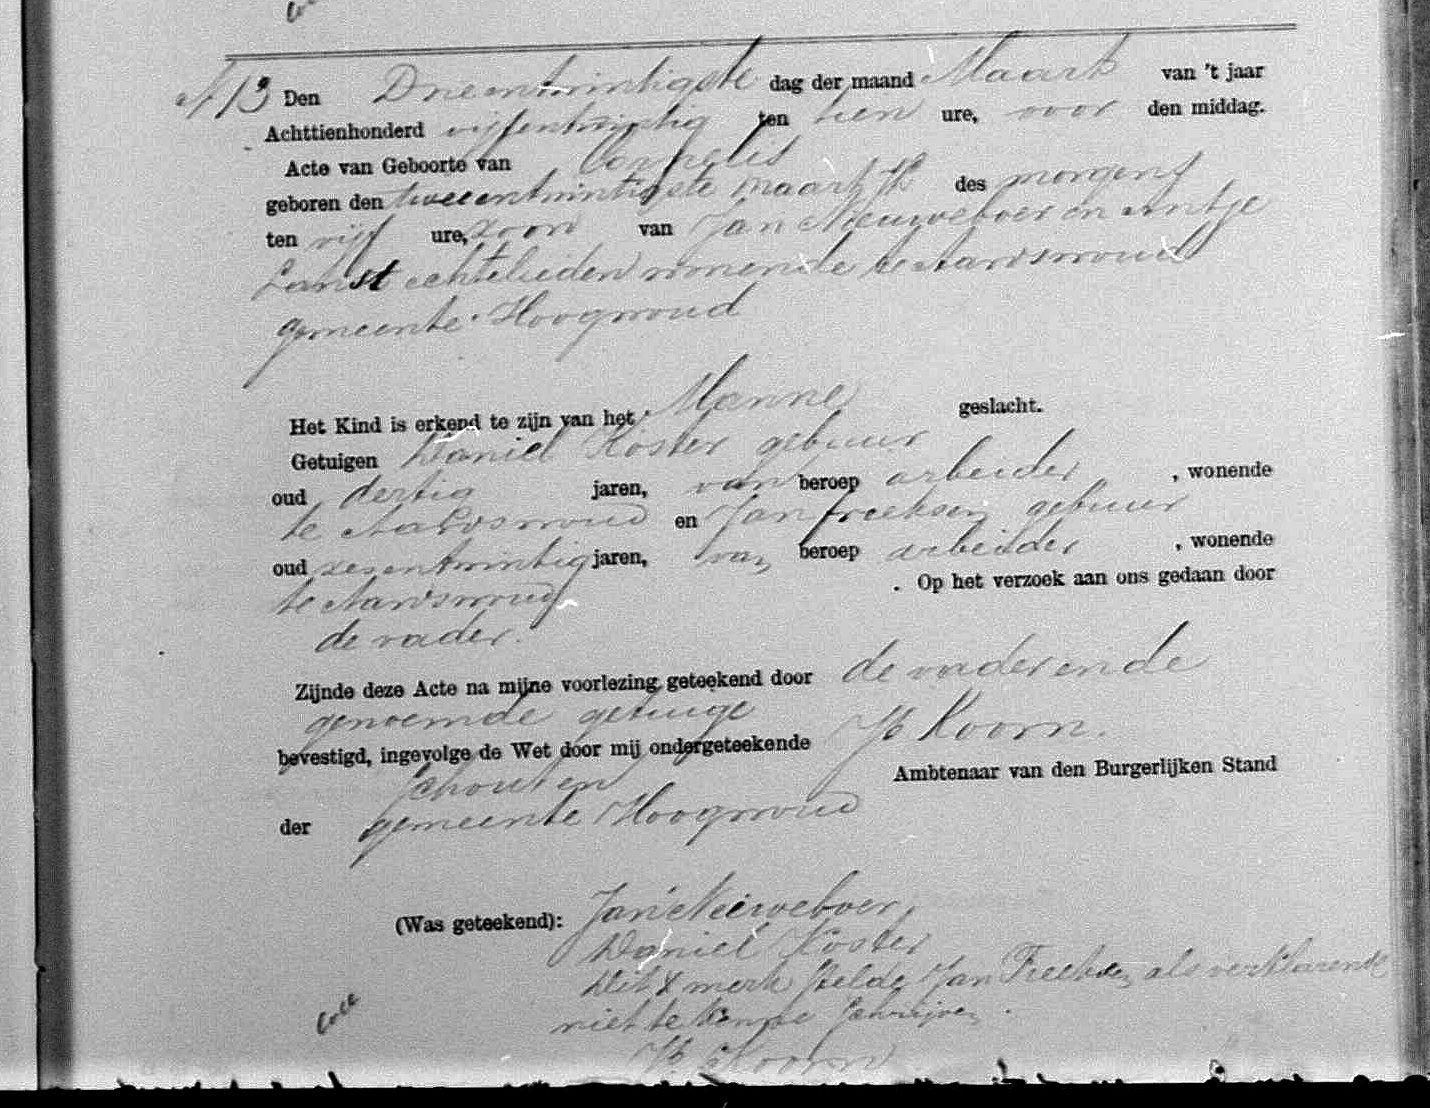 N 13 Den Drieentwintigste dag der maand Maart van 't jaar
Achttienhonderd vijfentwintig ten tien ure, voor den middag.
Acte van Geboorte van Cornelis
geboren den tweeentwintigste maart des morgens
ten vijf ure, zoon van Jan Nieuweboer en Antje
Lanst echtelieden wonende te Aardswoud
gemeente Hoogwoud
Het Kind is erkend te zijn van het Manne geslacht.
Getuigen Daniel Koster gebuur
oud dertig jaren, van beroep arbeider , wonende
te Aardswoud en Jan freeksen gebuur
oud zesentwintig jaren, van beroep arbeider , wonende
te Aardswoud . Op het verzoek aan ons gedaan door
de vader.
Zijnde deze Acte na mijne voorlezing geteekend door de vader en de
genoemde getuige
bevestigd, ingevolge de Wet door mij ondergeteekende Koorn.
Schout en Ambtenaar van den Burgerlijken Stand
der gemeente Hoogwoud
(Was geteekend): Jan Neiweboer,
Daniel Koster
Dit X merk stelde Jan Freeksen als verklarende
niet te konne schrijven.
Koorn